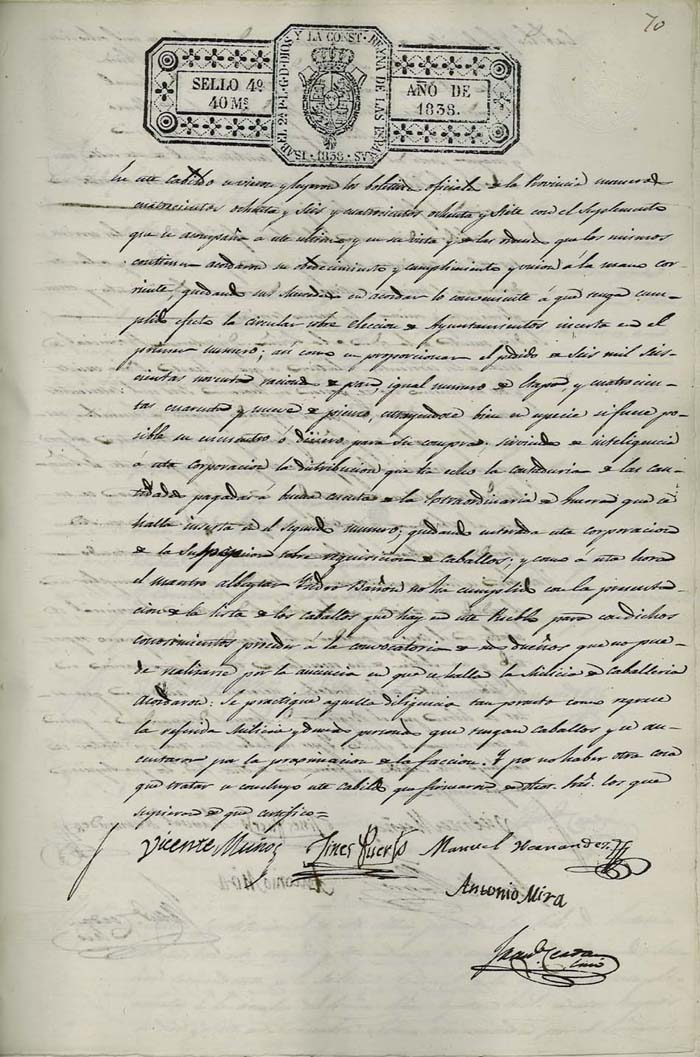 70
ISABEL 2ª P. L. G. D. DIOS Y LA CONST. REYNA DE LAS ESPAÑAS
1838
SELLO 4º
40 Ms
AÑO DE
1838.
En este Cabildo se vieron y leyeron los boletines oficiales de la Provincia numeros
cuatrocientos ochenta y seis y cuatrocientos ochenta y siete con el suplemento
que se acompaña a este ultimo, y en su vista y de las ordenes que los mismos
contienen acordaron su obedecimiento y cumplimiento y union á la mano cor-
riente, quedando sus mercedes en acordar lo conveniente á que tenga cum-
plido efecto la circular sobre eleccion de Ayuntamientos inserta en el
primer numero; asi como en proporcionar el pedido de seis mil seis-
cientas noventa raciones de pan, igual numero de etapa, y cuatrocien-
tas cuarenta y nueve de pienso, bien en especie si fuere po-
sible su encuentro ó dinero para su compra; sirviendo de inteligencia
á esta corporacion la distribucion que ha echo la Contaduria de las can-
tidades pagadas á buena cuenta de la Extraordinaria de Guerra que se
halla inserta en el segundo numero; quedando enterada esta corporacion
de la sobre requisicion de caballos, y como á esta hora
el maestro albeytar Ysidro Bañon no ha cumplido con la presenta-
cion de la lista de los caballos que hay en este Pueblo para con dichos
conocimientos proceder á la convocatoria de sus dueños que no pue-
de realizarse por la ausencia en que se halla la Milicia de caballeria
Acordaron: Se practique aquella diligencia tan pronto como regrese
la referida Milicia y demas personas que tengan caballos y se au-
sentaron por la proximacion de la faccion. Y por no haber otra cosa
que tratar se concluyó este Cabildo que firmaron de dhos. Sres. los que
supieron de que certifico=
Vicente Muñoz Jines Puerto Manuel Hernandez
Antonio Mira